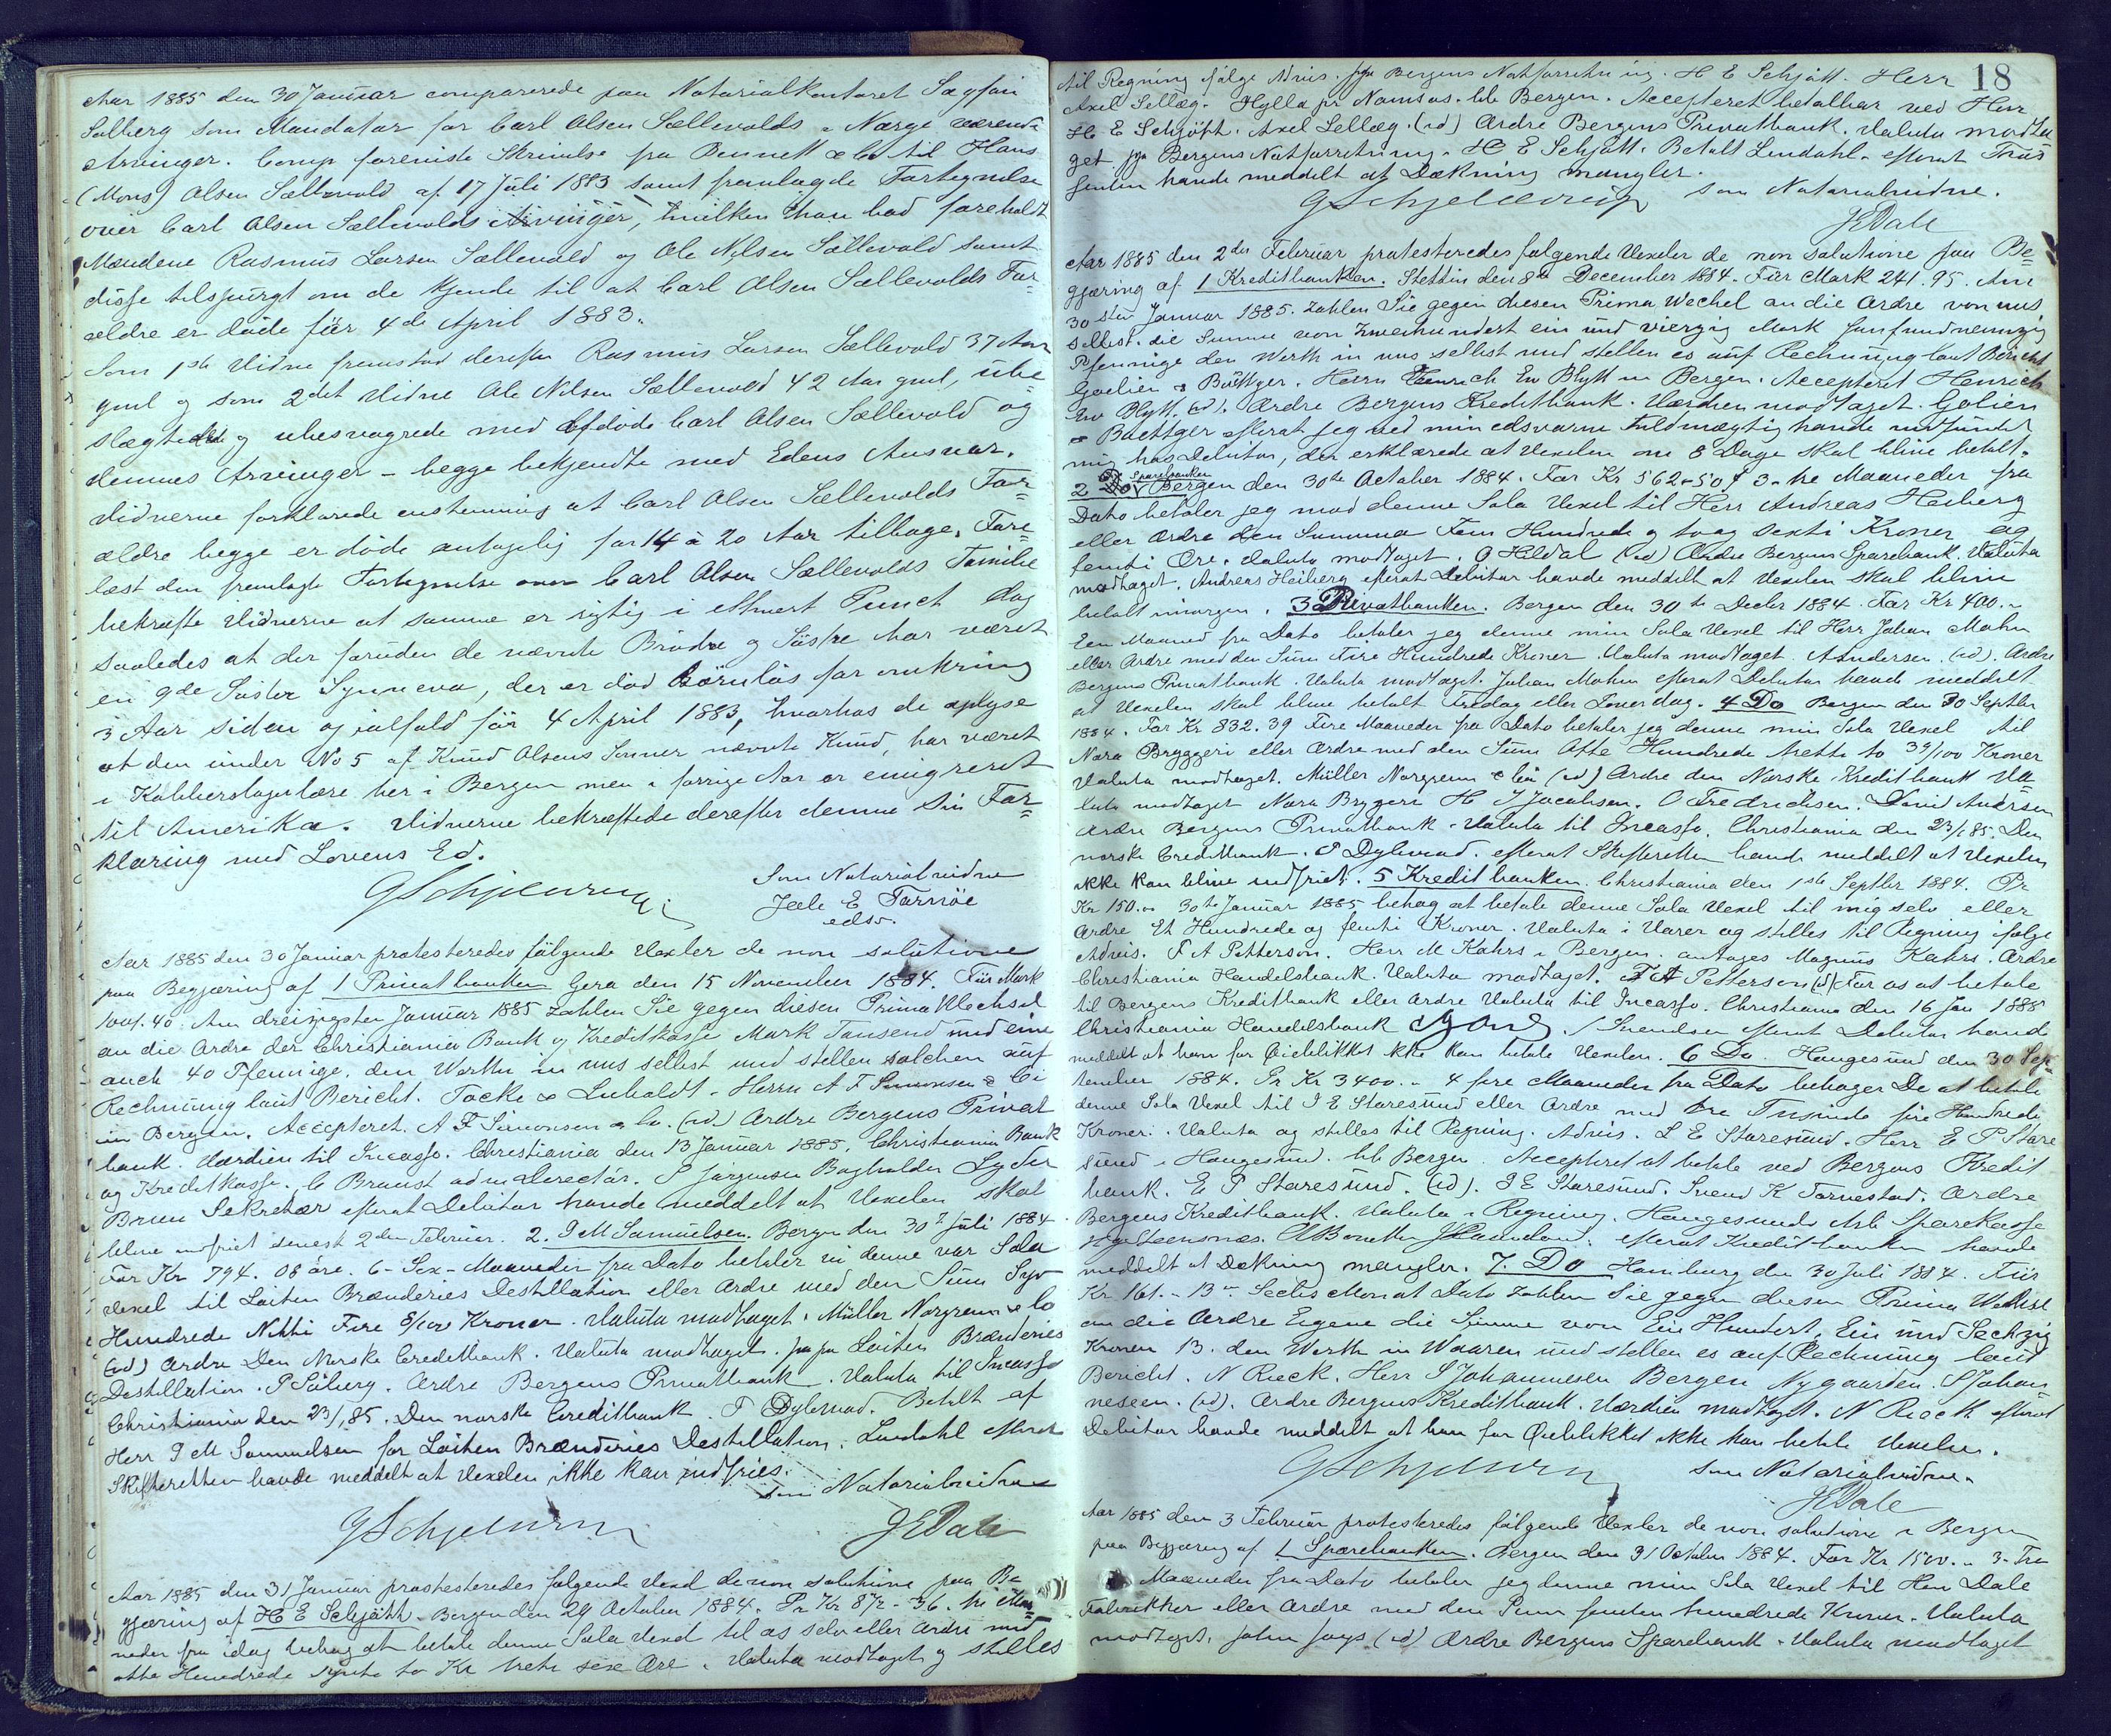 Aar 1885 den 30 Januar comparerede paa Notarialkontoret Sagfører
Solberg som Mandatar for Carl Olsen Sællevolds i Norge værende
Arvinger. Comp foreviste Skrivelse fra Bennett & Co til Hans
(Mons) Olsen Sællevold af 17 Juli 1883 samt fremlagde Fortegnelse
over Carl Olsen Sællevolds Arvinger, hvilken han bad foreholdt
Mændene Rasmus Larsen Sællevold og Ole Nilsen Sællevold samt
disse tilspurgt om de kjende til at Carl Olsen Sællevolds For-
ældre er døde før 4de April 1883.
Som 1ste Vidne fremstod derefter Rasmus Larsen Sællevold 37 Aar
gml og som 2det Vidne Ole Nilsen Sællevold 42 Aar gml, ube
slægtede og ubesvogrede med Afdøde Carl Olsen Sællevold og
dennes Arvinger - begge bekjendte med Edens Ansvar.
Vidnerne forklarede enstemmig at Carl Olsen Sællevolds For-
ældre begge er døde antagelig for 14 à 20 Aar tilbage. Fore-
læst den fremlagte Fortegnelse over Carl Olsen Sællevolds Familie
bekræfte Vidnerne at samme er rigtig i ethvert Punct dog
saaledes at der foruden de nævnte Brødre og Søstre har været
en 9de Søster Synneva, der er død Børnløs for omkring
3 Aar siden og ialfald før 4 April 1883, hvorhos de oplyse
at den under No 5 af Knud Olsens Sønner nævnte Knud, har været
i Kobberslagerlære her i Bergen men i forrige Aar er emigreret
til Amerika. Vidnerne bekræftede derefter denne Sin For-
klaring med Lovens Ed.
GSchjelderup Som Notarialvidne
Jele E Farnöe
edsv.
Aar 1885 den 30 Januar protesteredes følgende Vexler de non solutione
paa Begjæring af 1 Privatbanken Gera den 15 November 1884. Für Mark
1001.40. Am dreizigsten Januar 1885 zahlen Sie gegen diesen Prima Wechsel
an die Ordre der Christiania Bank og Kreditkasse Mark Tausend und eine
auch 40 Pfennige, den Werth in uns selbst und stellen solchen auf
Rechnung laut Bericht. Focke & Luboldt. Herrn A F Simonsen & Ci
in Bergen. Accepteret. A F Simonsen & Co. (id) Ordre Bergens Privat
bank. Værdien til Incasso. Christiania den 13 Januar 1885. Christiania Bank
og Kreditkasse. C Braust adm Directør. S Jørgensen Bogholder Lyder
Brun Sekretær efterat Debitor havde meddelt at Vexelen skal
blive indfriet senest 2den Februar. 2. J M Samuelsen. Bergen den 30te Juli 1884
For Kr 794. 08 øre. 6 - Sex - Maaneder fra Dato betaler vi denne vor Sola
Vexel til Løiten Brænderies Destillation eller Ordre med den Sum Syv
Hundrede Nitti Fire 8/100 Kroner. Valuta modtaget. Müller Norgreen & Co
(id) Ordre Den Norske Creditbank. Valuta modtaget. pr pa Løiten Brænderies
Destillation. P Søberg. Ordre Bergens Privatbank. Valuta til Incasso
Christiania den 23/1 85. Den norske Creditbank. T Dybwad. Betalt af
Herr J M Samuelsen for Løiten Brænderies Destillation. Lindahl efterat
Skifteretten havde meddelt at Vexelen ikke kan indfries.
som Notarialvidne
GSchjelderup JEDale
Aar 1885 den 31 Januar protesteredes følgende Vexel de non solutione paa Be
gjæring af H E Schjøtt. Bergen den 29 October 1884. Pr Kr 872-36. tre Maa-
neder fra idag behag at betale denne Sola Vexel til os selv eller Ordre med
otte Hundrede sytti to Kr treti sex Øre. Valuta modtaget og stilles
18
til Regning følge Advis. pp Bergens Natforretning. H E Schjøtt. Herr
Axel Sellæg. Hylla pr Namsos. ble Bergen. Accepteret betalbar ved Herr
H E Schjøtt. Axel Sellæg. (id) Ordre Bergens Privatbank. Valuta modta
get pp Bergens Natforretning. H E Schjøtt. Betalt Lindahl. efterat Tras
senten havde meddelt at Dækning mangler.
GSchjelderup som Notarialvidne.
JEDale
Aar 1885 den 2den Februar protesteredes følgende Vexler de non solutione paa Be-
gjæring af 1 Kreditbanken. Stettin den 8ten December 1884. Für Mark 241.95. Am
30sten Januar 1885. zahlen Sie gegen diesen Prima Wechel an die Ordre von uns
selbst. die Summe von Zweihundert ein und vierzig Mark fünfundneunzig
Pfennige den Werth in uns selbst und stellen es auf Rechnung laut Bericht
Golien & Böttger. Herrn Heinrich Ew Blytt in Bergen. Accepteret Henrich
Ew Blytt. (id). Ordre Bergens Kreditbank. Værdien modtaget. Golien
& Boettger efterat jeg ved min edsvorne Fuldmægtig havde indfundet
mig hos Debitor, der erklærede at Vexelen om 8 Dage skal blive betalt.
2 Sparebanken Bergen den 30te October 1884. For Kr 562-50 3-tre Maaneder fra
Dato betaler jeg mod denne Sola Vexel til Herr Andreas Heiberg
eller Ordre den Summa Fem Hundrede og toog sexti Kroner og
femti Øre. Valuta modtaget. O Heldal (id) Ordre Bergens Sparebank. Valuta
modtaget. Andreas Heiberg efterat Debitor havde meddelt at Vexelen skal blive
betalt imorgen. 3 Privatbanken. Bergen den 30te Decbr 1884. For Kr 400.-
Een Maaned fra Dato betaler jeg denne min Sola Vexel til Herr Johan Mohn
eller Ordre med den Sum Fire Hundrede Kroner. Valuta modtaget AAndersen. (id). Ordre
Bergens Privatbank. Valuta modtaget. Johan Mohn efterat Debitor havde meddelt
at Vexelen skal blive betalt Fredag eller Løverdag. 4 Do Bergen den 30 Septbr
1884. For Kr 832.39 Fire Maaneder fra Dato betaler jeg denne min Sola Vexel til
Nora Bryggeri eller Ordre med den Sum Otte Hundrede tretti to 39/100 Kroner
Valuta modtaget. Müller Norgreen & Co (id) Ordre den Norske Kreditbank Va-
luta modtaget Nora Bryggeri H J Jacobsen. O Fredrichsen. David Andersen
Ordre Bergens Privatbank. Valuta til Incasso. Christiania den 23/1 85. Den
norske Creditbank. T Dybwad. efterat Skifteretten havde meddelt at Vexelen
ikke kan blive indfriet. 5 Kreditbanken. Christiania den 1ste Septbr 1884. Pr
Kr 150.- 30te Januar 1885 behag at betale denne Sola Vexel til mig selv eller
Ordre Et Hundrede og femti Kroner. Valuta i Varer og stilles til Regning følge
Advis. F A Petterson. Herr M Kahrs i Bergen. antages Magnus Kahrs. Ordre
Christiania Handelsbank. Valuta modtaget. F A Petterson (id) For os at betale
til Bergens Kreditbank eller Ordre Valuta til Incasso. Christiania den 16 Jan 1885
Christiania Handelsbank / Svendsen efterat Debitor havde
meddelt at han for Øieblikket ikke kan betale Vexelen. 6 Do. Haugesund den 30 Sep-
tember 1884. Pr Kr 3400.- 4 fire Maaneder fra Dato behager De at betale
denne Sola Vexel til J E Staresund eller Ordre med tre Tusinde fire Hundrede
Kroner. Valuta og stilles til Regning. Advis. L E Staresund. Herr E P Stare
sund i Haugesund. ble Bergen. Accepteret at betale ved Bergens Kredit
bank. E P Staresund. (id). J E Staresund. Svend K Tornestad. Ordre
Bergens Kreditbank. Valuta i Regning. Haugesunds Arb Sparekasse
efterat Kreditbanken havde
meddelt at Dækning mangler. 7. Do Hamburg den 30 Juli 1884. Für
Kr 161.- 13- Sechs Monat Dato zahlen Sie gegen diesen Prima Wechsel
an die Ordre Eigene die Summe von Ein Hundert, Ein und Sechzig
Kronen 13. den Werth in Waaren und stellen es auf Rechnung laut
Bericht. N Rieck. Herr S Johannesen Bergen Nygaarden. S Johan
nesen. (id). Ordre Bergens Kreditbank. Værdien modtaget. N Rieck efterat
Debitor havde meddelt at han for Øieblikket ikke kan betale Vexelen.
GSchjelderup som Notarialvidne.
JEDale
Aar 1885 den 3 Februar protesteredes følgende Vexler de non solutione i Bergen
paa Begjæring af 1 Sparebanken. Bergen den 31 October 1884. For Kr 1500.- 3-Tre
Maaneder fra Dato betaler jeg denne min Sola Vexel til Herr Dale
Fabrikker eller Ordre med den Sum femten hundrede Kroner. Valuta
modtaget. John Joys (id) Ordre Bergens Sparebank. Valuta modtaget